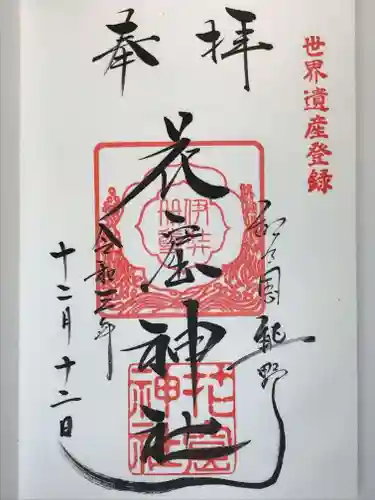 奉拝
世界遺産登録
紀乃国 熊野
花窟神社
令和三年
十二月十二日
花窟
神社